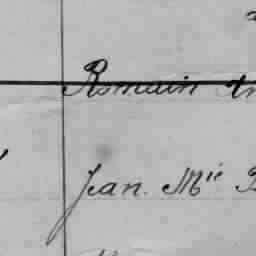 Romain
Jean. Mie